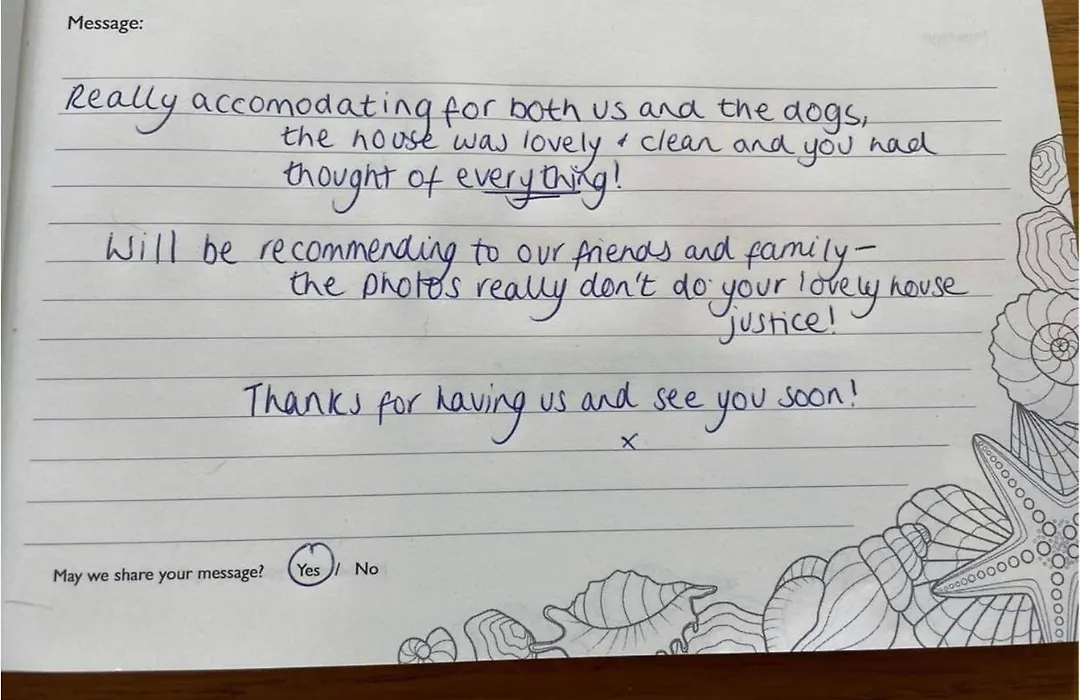 Message:
Really accomodating for both us and the dogs,
the house was lovely & clean and you had
thought of everything!
Will be recommending to our friends and family–
the photos really don't do your lovely house
justice!
Thanks for having us and see you soon!
x
May we share your message? Yes / No